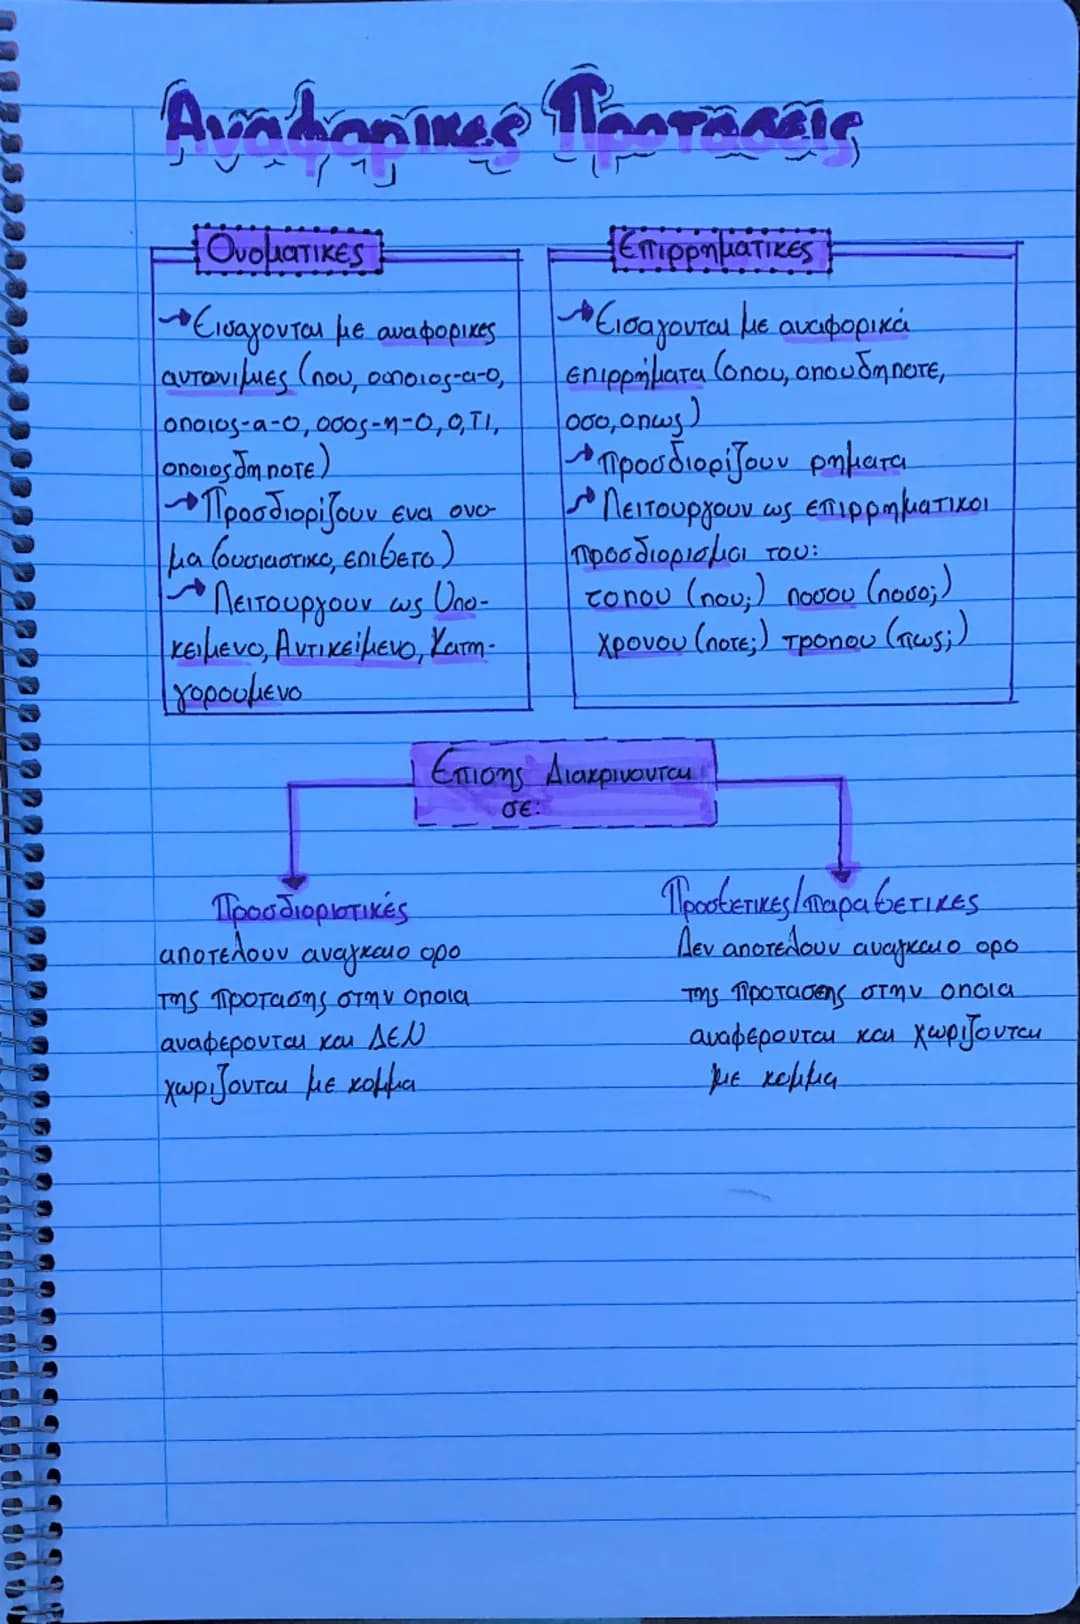 Αναφορικες Προτασεις
Ονοματικες
→Εισαγονται με αναφορικες
αντωνιμιες (που, οοποιος-α-ο,
οποιος-α-ο, οσος-η-ο, ο,τι,
οποιοςδηποτε)
→Προσδιοριζουν ενα ονο-
μα (ουσιαστικο, επιθετο)
→Λειτουργουν ως Υπο-
κειμενο, Αντικείμενο, Κατη-
γορουμενο
Επιρρηματικες
→Εισαγονται με αναφορικά
επιρρήματα (οπου, οπουδηποτε,
οσο, οπως)
→Προσδιοριζουν ρηματα
→Λειτουργουν ως επιρρηματικοι
προσδιορισμοι του:
τοπου (που;) ποσου (ποσο;)
χρονου (ποτε;) τροπου (πως;)
Επισης Διακρινονται
σε:
Προσδιοριστικές
αποτελουν αναγκαιο ορο
της προτασης στην οποια
αναφερονται και ΔΕΝ
χωριζονται με κομμα
Προσθετικες/παραθετικες
Δεν αποτελουν αναγκαιο ορο
της προτασης στην οποια
αναφερονται και χωριζονται
με κομμα